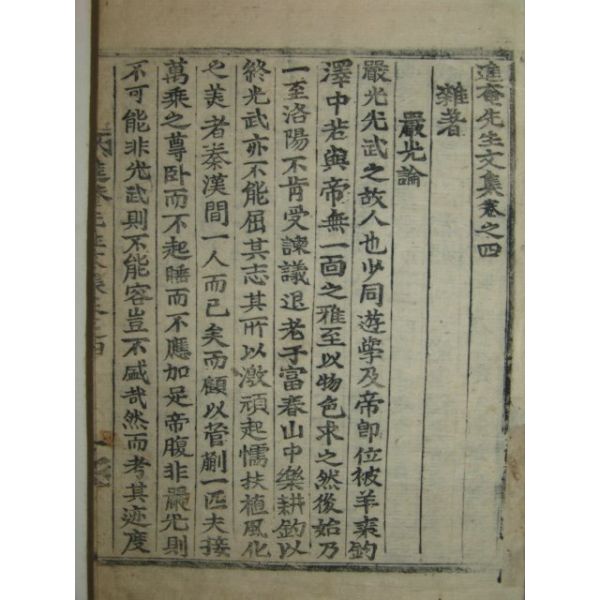 進菴先生文集卷之四
雜著
嚴光論
嚴光光武之故人也少同遊學及帝卽位被羊裘釣
澤中若與帝無一面之雅至以物色求之然後始乃
一至洛陽不肯受諫議退老于富春山中樂耕釣以
終光武亦不能屈其志其所以激頑起懦扶植風化
之美者秦漢間一人而已矣而顧以管蒯一匹夫接
萬乘之尊卧而不起睡而不應加足帝腹非嚴光則
不可能非光武則不能容豈不盛哉然而考其迹度